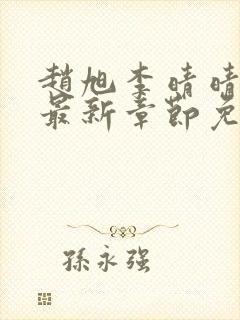 趙旭李晴晴
最新章節免
孫永强